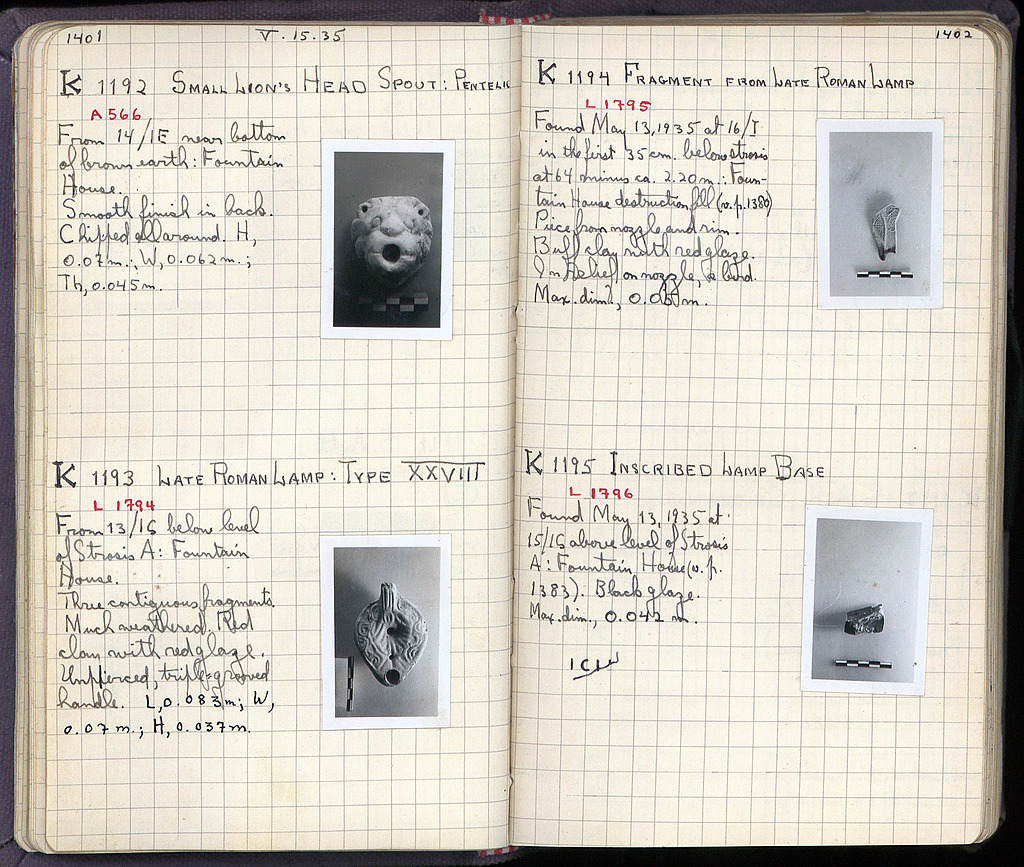 1401
V. 15.35
K 1192 SMALL LION'S HEAD SPOUT: PENTELIC
A 566
From 14/ΙΕ near bottom
of brown earth: Fountain
House.
Smooth finish in back.
Chipped all around. H,
0.07m.; W, 0.062 m.;
Th, 0.045 m.
K 1193 LATE ROMAN LAMP: TYPE XXVIII
L 1794
From 13/ΙϚ below level
of Strosis A: Fountain
House.
Three contiguous fragments.
Much weathered. Red
clay with red glaze.
Unpierced, triple-grooved
handle. L, 0.083 m; W,
0.07 m.; H, 0.037 m.
1402
K 1194 FRAGMENT FROM LATE ROMAN LAMP
L 1795
Found May 13, 1935 at 16/Ι
in the first 35 cm. below strosis
at 64 minus ca. 2.20 m.: Foun-
tain House destruction fill (v. p. 1380)
Piece from nozzle and rim.
Buff clay with red glaze.
In relief on nozzle, a bird.
Max. dim., m.
K 1195 INSCRIBED LAMP BASE
L 1796
Found May 13, 1935 at
15/ΙϚ above level of Strosis
A: Fountain House (v. p.
1383). Black glaze.
Max. dim., 0.042 m.